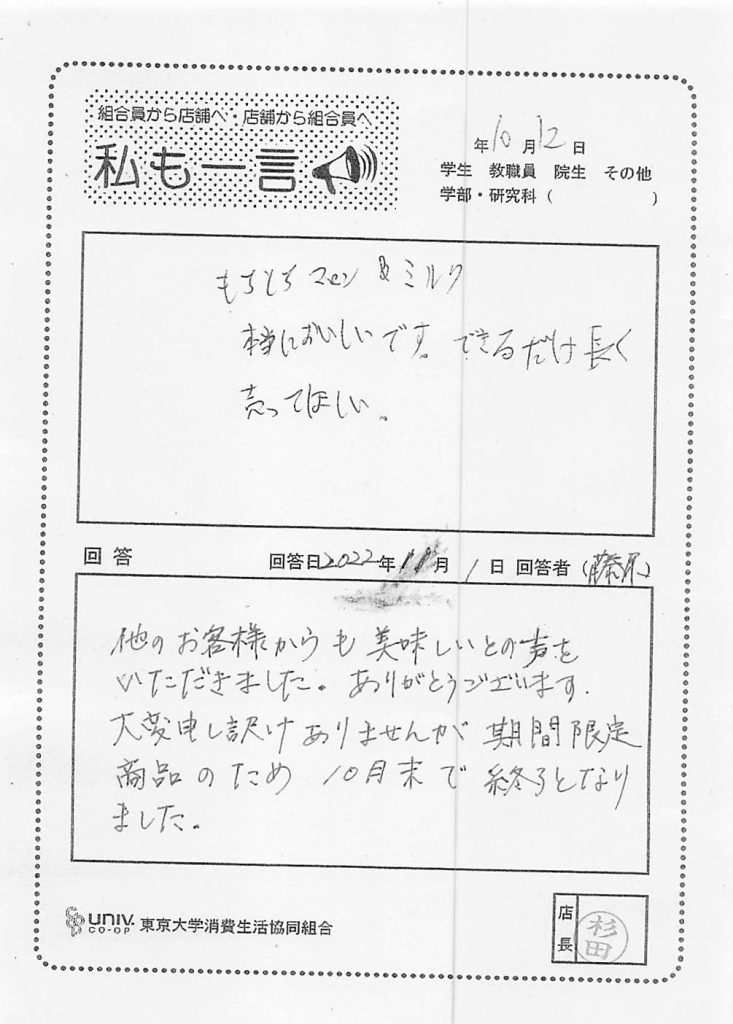 組合員から店舗へ・店舗から組合員へ
私も一言
年10月12日
学生 教職員 院生 その他
学部・研究科( )
もちもち マロン &ミルク
本当においしいです。できるだけ長く
売ってほしい。
回答 回答日2022年11月1日 回答者(藤原)
他のお客様からも美味しいとの声を
いただきました。ありがとうございます.
大変申し訳けありませんが 期間限定
商品のため 10月末で終了となり
ました。
UNIV. CO-OP 東京大学消費生活協同組合
店長 杉田